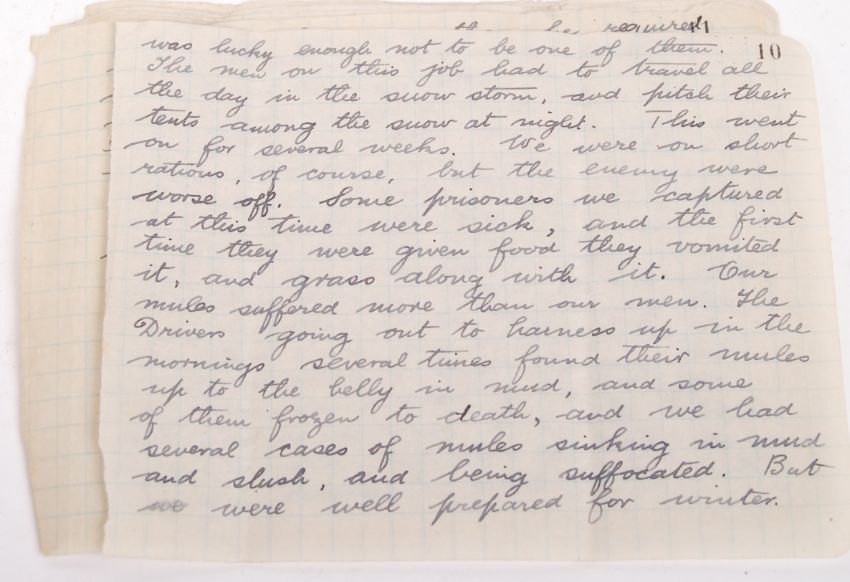 be required
11
10
was lucky enough not to be one of them.
The men on this job had to travel all
the day in the snow storm, and pitch their
tents among the snow at night. This went
on for several weeks. We were on short
rations, of course, but the enemy were
worse off. Some prisoners we captured
at this time were sick, and the first
time they were given food they vomited
it, and grass along with it. Our
mules suffered more than our men. The
Drivers going out to harness up in the
mornings several times found their mules
up to the belly in mud, and some
of them frozen to death, and we had
several cases of mules sinking in mud
and slush, and being suffocated. But
we were well prepared for winter.